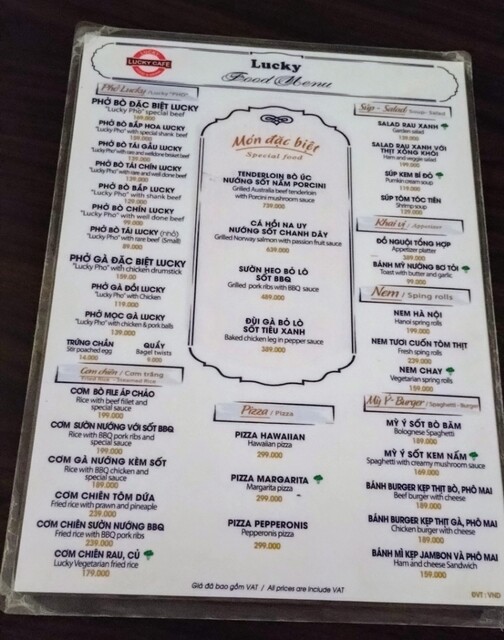 LUCKY CAFE
Lucky
Food Menu
Phở Lucky /
PHỞ BÒ ĐẶC BIỆT LUCKY
"Lucky Pho" special beef
169.000
PHỞ BÒ BẮP HOA LUCKY
"Lucky Pho" with special shank beef
159.000
PHỞ BÒ TÁI GẦU LUCKY
139.000
PHỞ BÒ TÁI CHÍN LUCKY
"Lucky Pho" with rare and well done beef
139.000
PHỞ BÒ BẮP LUCKY
"Lucky Pho" with shank beef
129.000
PHỞ BÒ CHÍN LUCKY
"Lucky Pho" with well done beef
99.000
PHỞ BÒ TÁI LUCKY (nhỏ)
"Lucky Pho" with rare beef (Small)
89.000
PHỞ GÀ ĐẶC BIỆT LUCKY
"Lucky Pho" with chicken drumstick
159.00
PHỞ GÀ ĐÔI LUCKY
"Lucky Pho" with Chicken
119.000
PHỞ MỌC GÀ LUCKY
"Lucky Pho" with chicken & pork balls
129.000
TRỨNG CHẦN
Stir poached egg
14.000
QUẨY
Bagel twists
9.000
Cơm chiên / Cơm trắng
Fried Rice - Steamed Rice
CƠM BÒ FILE ÁP CHẢO
Rice with beef fillet and
special sauce
199.000
CƠM SƯỜN NƯỚNG VỚI SỐT BBQ
Rice with BBQ pork ribs and
special sauce
199.000
CƠM GÀ NƯỚNG KÈM SỐT
Rice with BBQ chicken and
special sauce
189.000
CƠM CHIÊN TÔM DỨA
Fried rice with prawn and pineaple
239.000
CƠM CHIÊN SƯỜN NƯỚNG BBQ
Fried rice with BBQ pork ribs
239.000
CƠM CHIÊN RAU, CỦ
Lucky Vegetarian fried rice
179.000
Món đặc biệt
Special food
TENDERLOIN BÒ ÚC
NƯỚNG SỐT NẤM PORCINI
Grilled Australia beef tenderloin
with Porcini mushroom sauce
739.000
CÁ HỒI NA UY
NƯỚNG SỐT CHANH DÂY
Grilled Norway salmon with passion fruit sauce
639.000
SƯỜN HEO BỎ LÒ
SỐT BBQ
Grilled pork ribs with BBQ sauce
489.000
ĐÙI GÀ BỎ LÒ
SỐT TIÊU XANH
Baked chicken leg in pepper sauce
389.000
Pizza / Pizza
PIZZA HAWAIIAN
Hawaiian pizza
299.000
PIZZA MARGARITA
Margarita pizza
299.000
PIZZA PEPPERONIS
Pepperonis pizza
299.000
Súp - Salad / Soup - Salad
SALAD RAU XANH
Garden salad
139.000
SALAD RAU VỚI
THỊT XÔNG KHÓI
Ham and veggie salad
199.000
SÚP KEM BÍ ĐỎ
Pumkin cream soup
119.000
SÚP TÔM TÓC TIÊN
Shrimp soup
139.000
Khai vị / Appetizer
ĐỒ NGUỘI TỔNG HỢP
Appetizer platter
389.000
BÁNH MỲ NƯỚNG BƠ TỎI
Toast with butter and garlic
99.000
Nem / Spring rolls
NEM HÀ NỘI
Hanoi spring rolls
199.000
NEM TƯƠI CUỐN TÔM THỊT
Fresh spring rolls
239.000
NEM CHAY
Vegetarian spring rolls
159.000
Mỳ Ý - Burger / Spaghetti - Burger
MỲ Ý SỐT BÒ BẰM
Bolognese Spaghetti
189.000
MỲ Ý SỐT KEM NẤM
Spaghetti with creamy mushroom sauce
169.000
BÁNH BURGER KẸP THỊT BÒ, PHÔ MAI
Beef burger with cheese
189.000
BÁNH BURGER KẸP THỊT GÀ, PHÔ MAI
Chicken burger with cheese
189.000
BÁNH MÌ KẸP JAMBON VÀ PHÔ MAI
Ham and cheese Sandwich
159.000
Giá đã bao gồm VAT / All prices are include VAT
ĐVT : VND